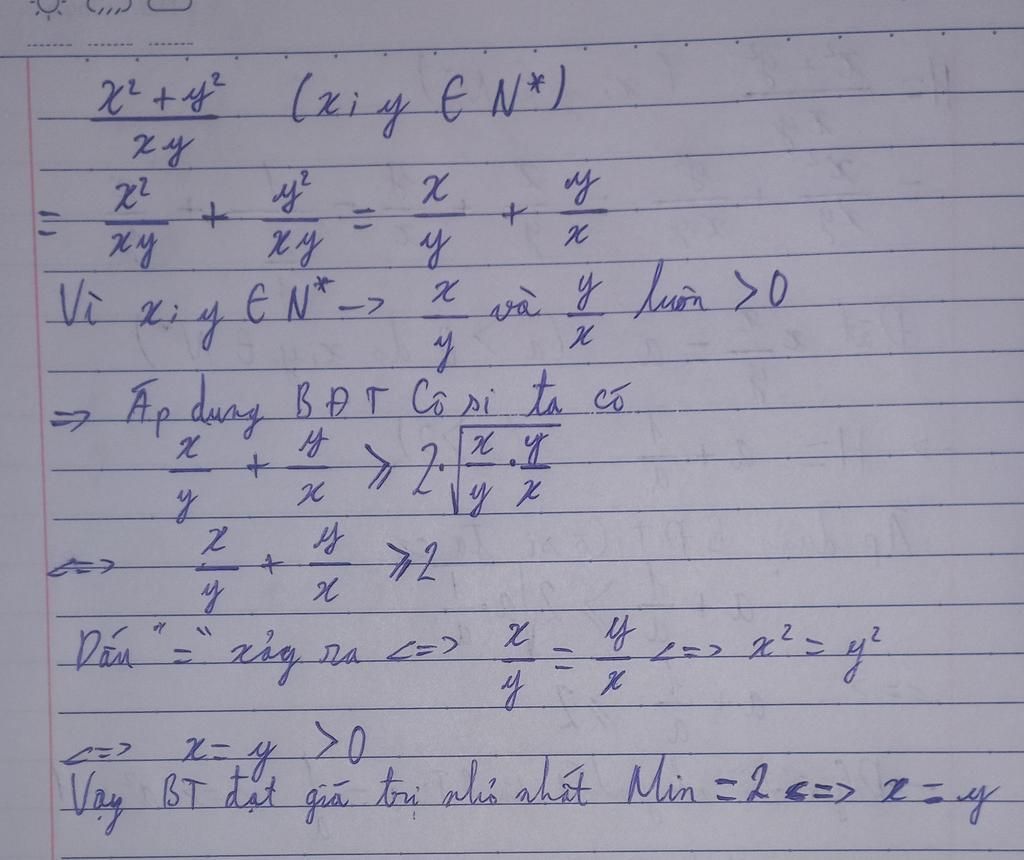 x² + y² / xy (x; y ∈ N*)
= x²/xy + y²/xy = x/y + y/x
Vì x; y ∈ N* -> x/y và y/x luôn > 0
=> Áp dung BĐT Cô si ta có
x/y + y/x ⩾ 2.√(x/y . y/x)
<=> x/y + y/x ⩾ 2
Dấu "=" xảy ra <=> x/y = y/x <=> x² = y²
<=> x = y > 0
Vay BT đạt giá trị nhỏ nhất Min = 2 <=> x = y